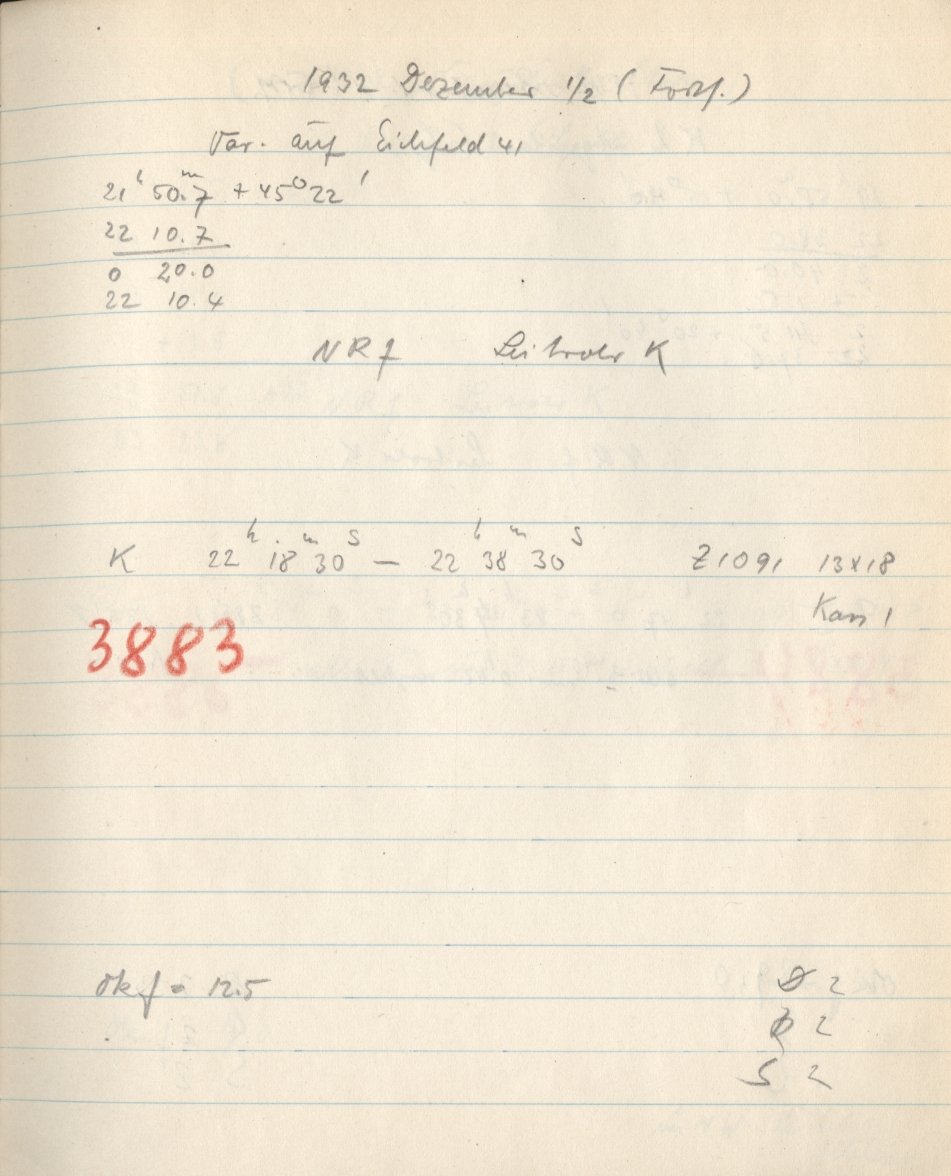 1932 Dezember 1/2 (Forts.)
Var. auf Eichfeld 41
21h 50.m7 + 45° 22'
22 10.7
0 20.0
22 10.4
NRf Leitrohr K
K 22h 18m 30s — 22h 38m 30s Z1091 13x18
Kass 1
3883
Okf = 12.5
2
2
S 2